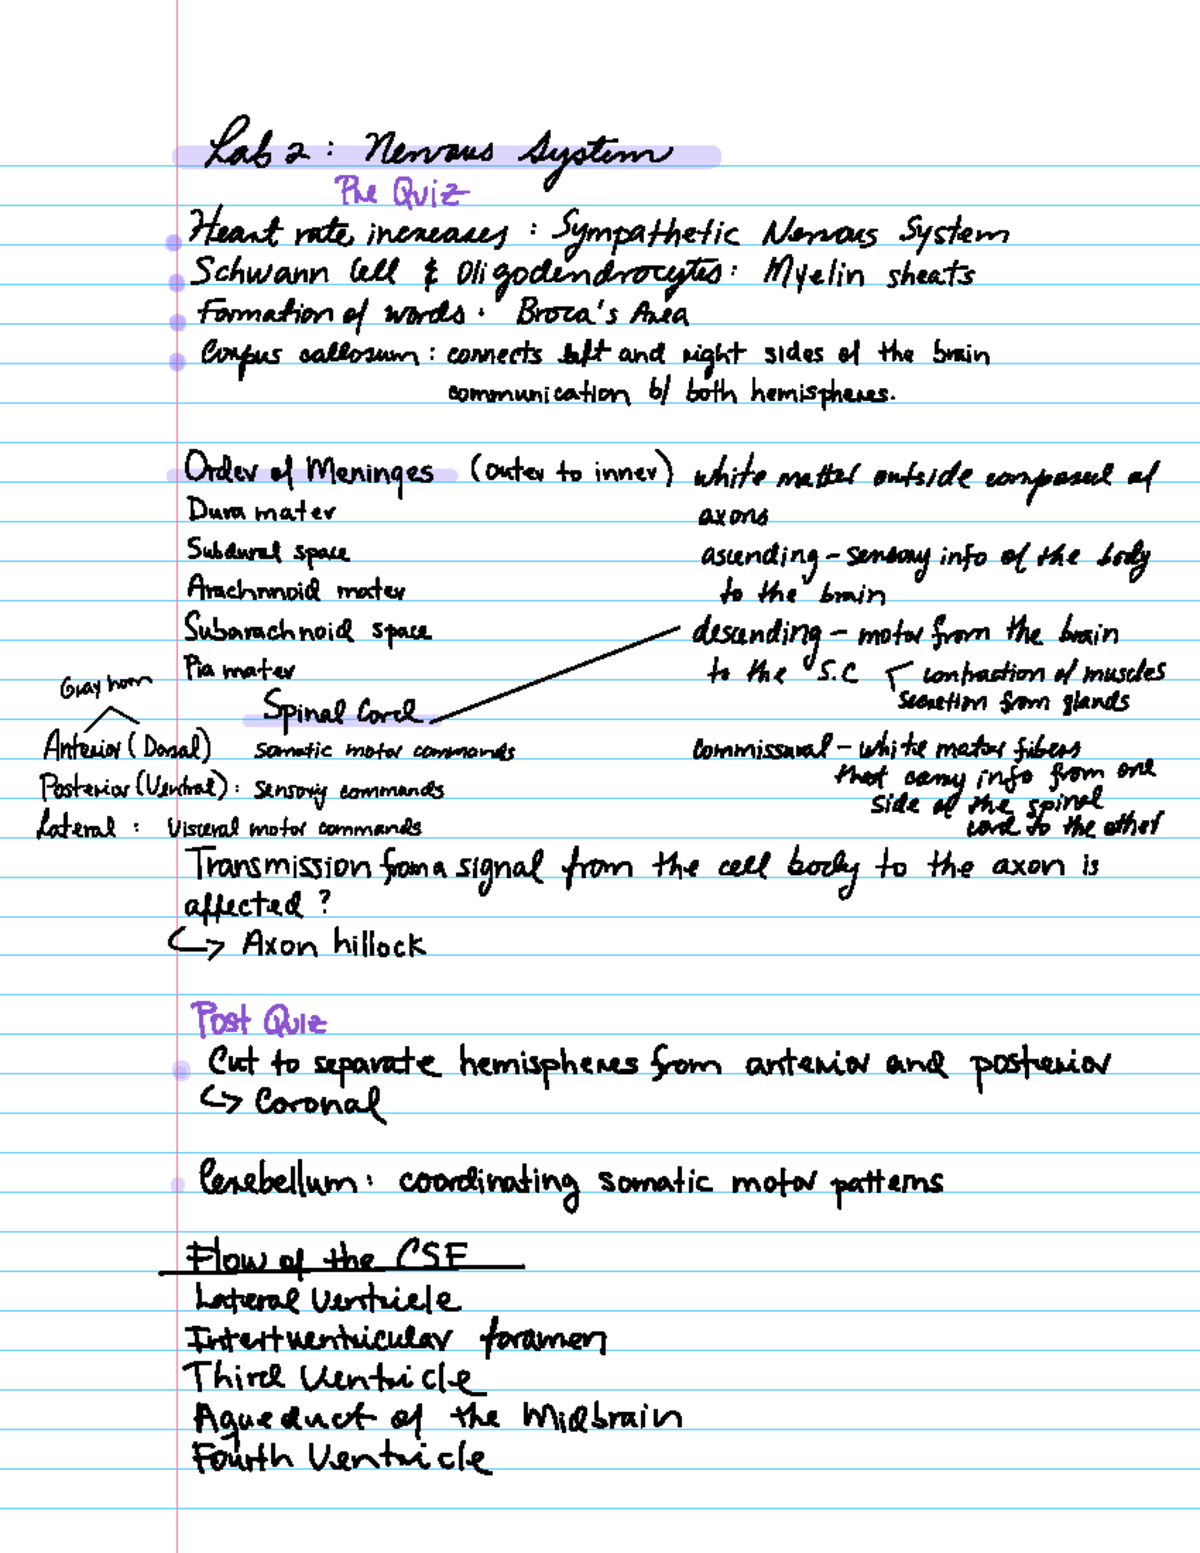 Lab 2 : Nervous System
Pre Quiz
Heart rate increases : Sympathetic Nervous System
Schwann Cell & Oligodendrocytes: Myelin sheats
Formation of words. Broca's Area
Corpus callosum : connects left and right sides of the brain
communication b/ both hemispheres.
Order of Meninges (outer to inner)
Dura mater
Subdural space
Arachnnoid mater
Subarachnoid space
Pia mater
white matter outside composed of
axons
ascending - sensory info of the body
to the brain
descending - motor from the brain
to the S.C
contraction of muscles
secretion from glands
commissural - white mater fibers
that carry info from one
side of the spinal
cord to the other
Spinal Cord
Gray horn
Anterior (Dorsal) somatic motor commands
Posterior (Ventral) : sensory commands
Lateral : Visceral motor commands
Transmission from a signal from the cell body to the axon is
affected ?
↪ Axon hillock
Post Quiz
Cut to separate hemispheres from anterior and posterior
↪ Coronal
Cerebellum : coordinating somatic motor patterns
Flow of the CSF
Lateral Ventricle
foramen
Third Ventricle
Aqueduct of the Midbrain
Fourth Ventricle